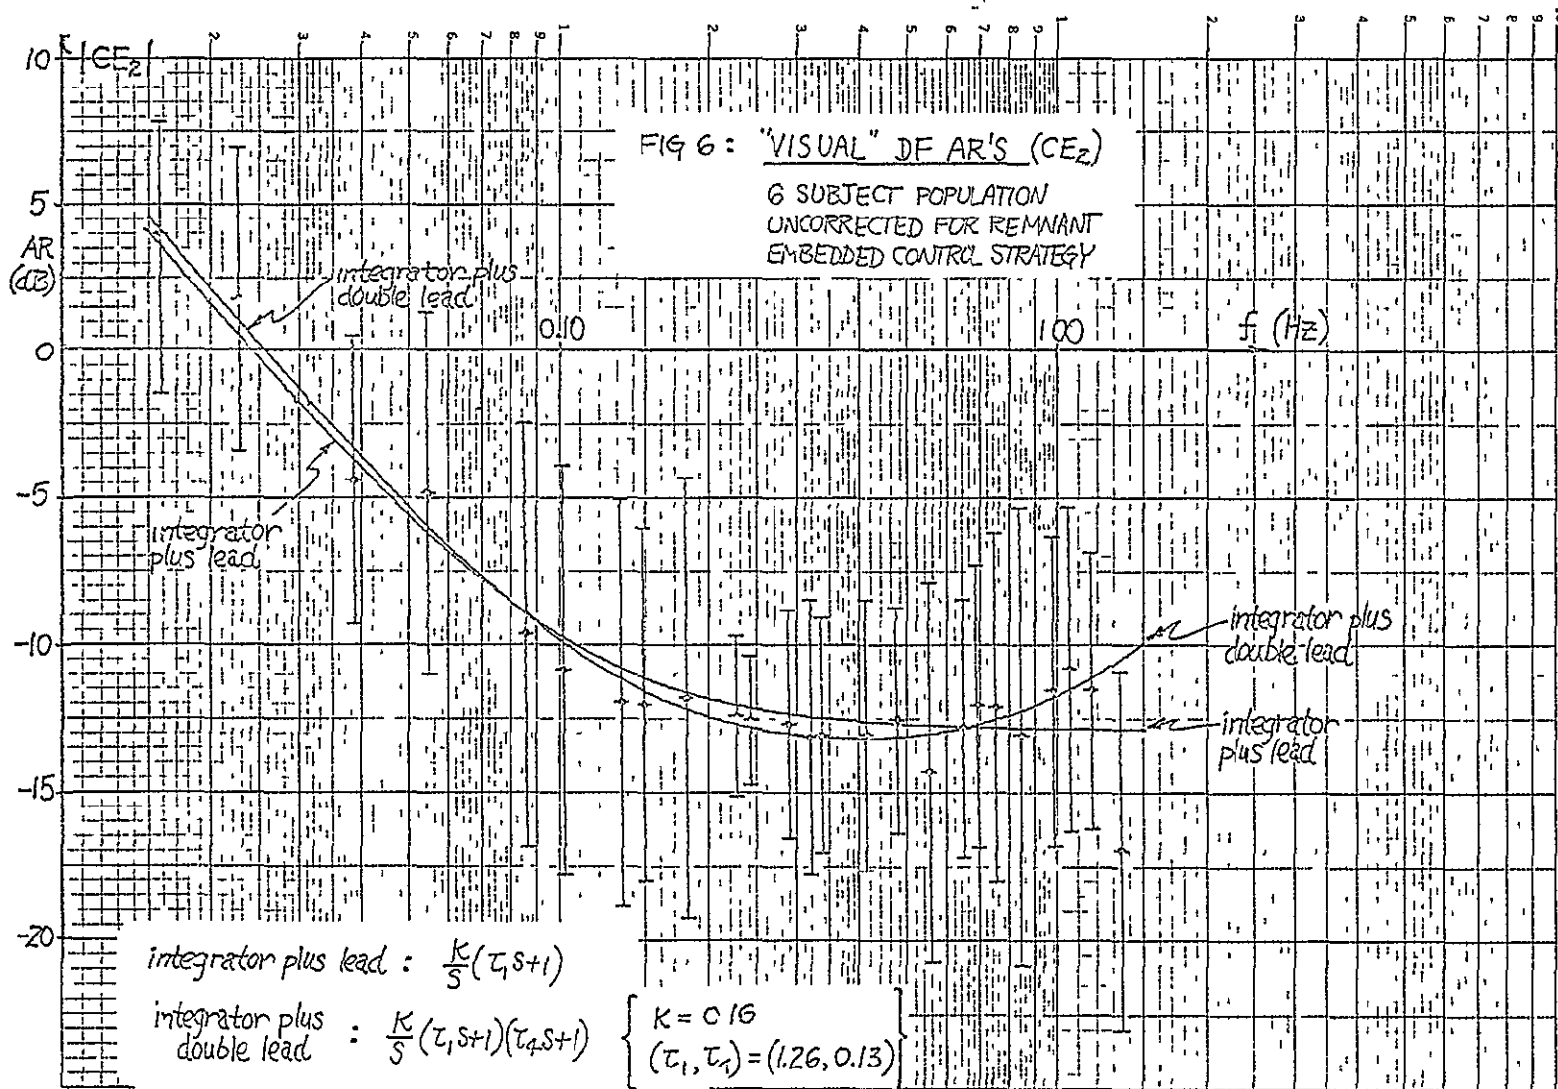 2 3 4 5 6 7 8 9 1 2 3 4 5 6 7 8 9 1 2 3 4 5 6 7 8 9
|CE₂|
10
5
AR
(dB)
0
-5
-10
-15
-20
FIG 6: "VISUAL" DF AR'S (CE₂)
6 SUBJECT POPULATION
UNCORRECTED FOR REMNANT
EMBEDDED CONTROL STRATEGY
integrator plus
double lead
0.10
1 00
f (Hz)
integrator
plus lead
integrator plus
double lead
integrator
plus lead
integrator plus lead : K/S (τ₁S+1)
integrator plus
double lead : K/S (τ₁S+1)(τ₄S+1)
K = 0 16
(τ₁, τ₄) = (1.26, 0.13)